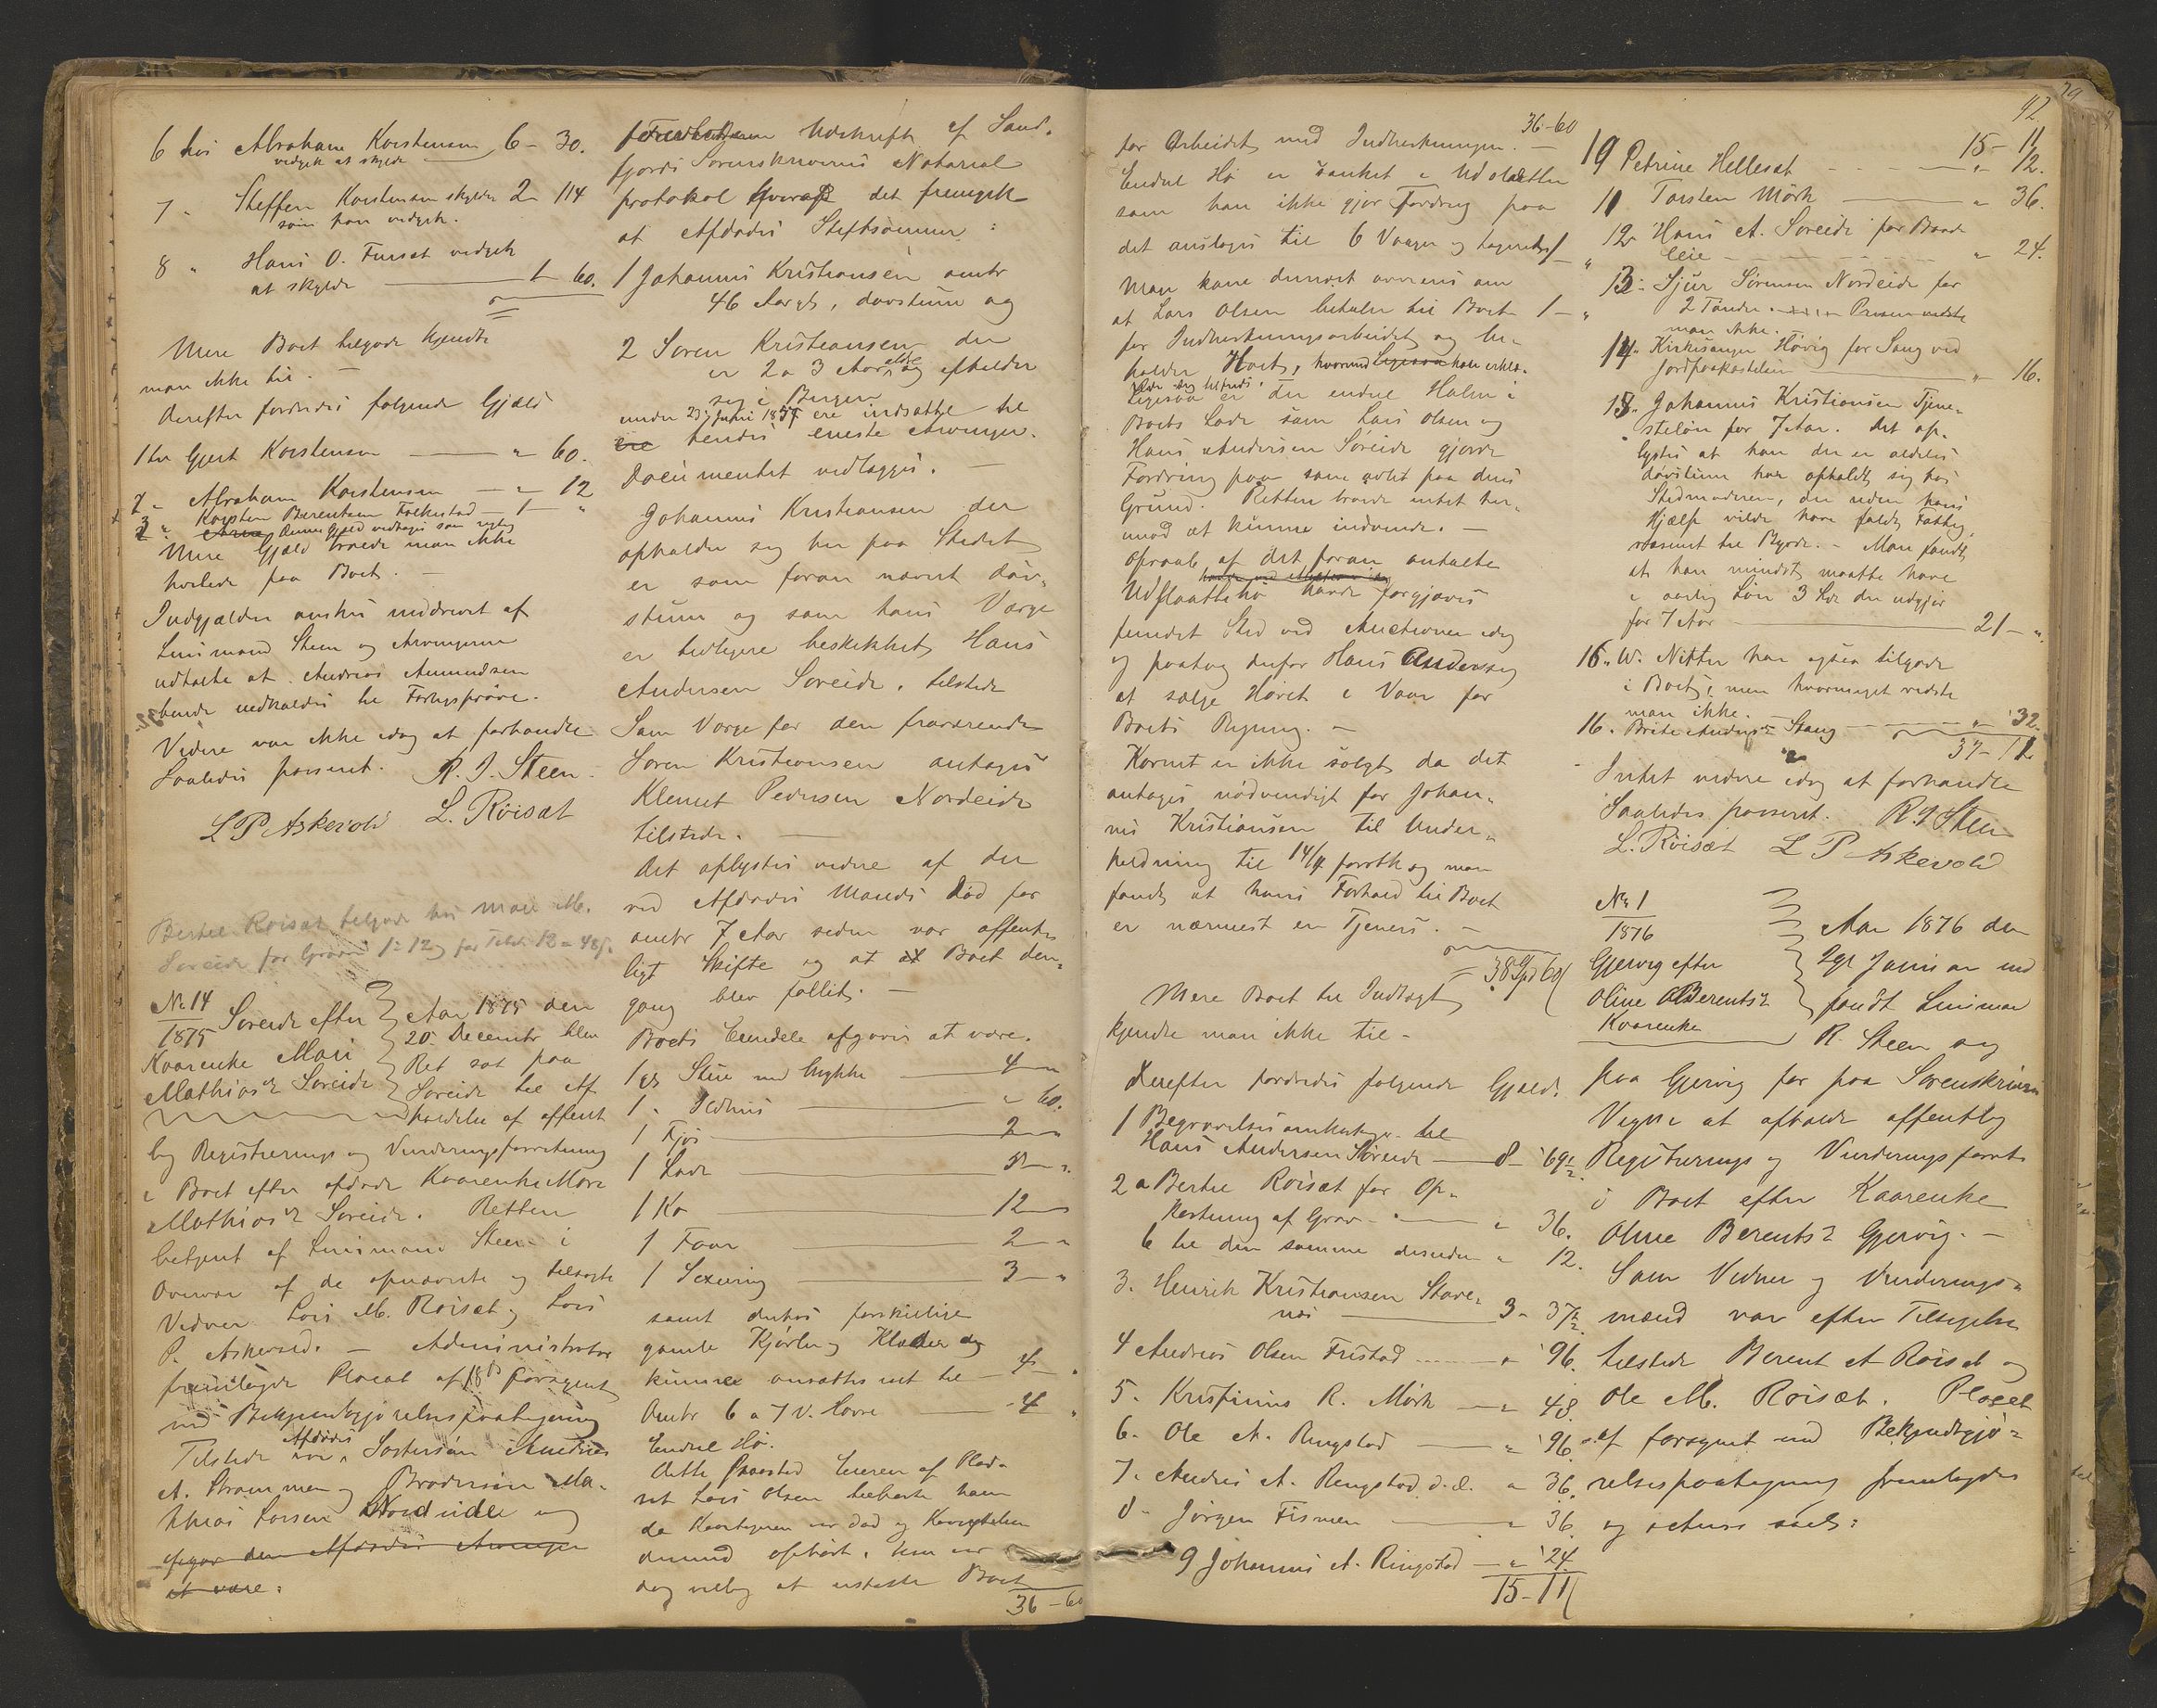 6 hos Abraham Karstensen 6 - 30.
vedgik at skylde
7 " Steffen Karstensen skylder 2 - 114
som han vedgik.
8 " Hans O. Furset vedgik
at skylde 1 60.
Mere Boet tilgode kjendte
man ikke til. —
Derefter fordredes følgende Gjæld
1 til Gjert Karstensen — " 60.
2 " Abraham Karstensen — " 12
3 " Karsten Berentsen Folkestad — 1 "
denne Gjæld vedtages som rigtig
Mere Gjæld troede man ikke
hvilede paa Boet. —
Indgjælden ønskes inddrevet af
Lensmand Steen og Arvingerne
udtalte at Andreas Amundsen
burde indkaldes til Forligsprøve.
Videre var ikke idag at forhandle
Saaledes passeret. R. J. Steen
L P Askevold L. Röisæt
Bertel Roisæt tilgode hos Mari M.
Søreide for Graven 1 - 12 og for
No 14
1875 Søreide efter
Kaarenke Mari
Mathiasd. Søreide
Aar 1875 den
20 December blev
Ret sat paa
Søreide til Af
holdelse af offent
lig Registrerings og Vurderingsforretning
i Boet efter afdøde Kaarenke Mari
Mathiasd. Søreide. Retten
betjent af Lensmand Steen i
Overvær af de opnævnte og tilsagte
Vidner Lars M. Roisæt og Lars
P. Askevold. — Administrator
fremlagde Placat af 18 ds forsynet
med Bekjendtgjørelsespaategning
Tilstede var Afdødes Søstersøn Andreas
A. Strømmen og Brodersøn Ma-
thias Larsen Nordeide og
opgav den Afdødes Arvinger
at være:
Udskrift af Sønd-
fjords Sorenskriveries Notarial
protokol hvoraf det fremgik
at Afdødes Stifsønner:
1 Johannes Kristiansen omtr
46 Aar gl, døvstum og
2 Søren Kristiansen der
er 2 a 3 Aar ældre og opholder
sig i Bergen
under 23de Juni 1857 ere indsatte til
hendes eneste Arvinger.
Documentet vedlægges. —
Johannes Kristiansen der
opholder sig her paa Stedet
er som foran nævnt døv-
stum og som hans Værge
er tidligere beskikket Hans
Andersen Søreide, tilstede
Som Værge for den fraværende
Søren Kristiansen antages
Klemet Pedersen Nordeide
tilstede. —
Det oplystes videre af der
ved Afdødes Mands Død for
omtr 7 Aar siden var offent-
ligt Skifte og at Boet den-
gang blev fallit. —
Boets Eiendele opgaves at være.
1 gl Stue med Anykke — 4 — "
1 " Ildhus — " 60.
1 Fjøs — 2 — "
1 Lade — "
1 Ko — 12 — "
1 Faar — 2 — "
1 Sexering — 3 — "
samt endvidere forskjellige
gamle Kjørler og Klæder
kunne ansættes ret til — 4 — "
Omtr 6 a 7 V. Havre — 4 "
Endel Hø.
Dette paastod Eieren af Plad-
set Lars Olsen tilhørte ham
da Kaarkonen var død og
dermed ophørt, han var
dog villig at erstatte Boet
36 - 60
36 - 60
for Arbeidet med Indhøstningen. —
Endel Hø er sanket i Udslætter
som han ikke gjør Fordring paa
det ansloges til 6 Vaager
Man kom dernæst overens om
at Lars Olsen betaler til Boet 1 — "
for Indhøstningsarbeidet og be-
holder Høet, hvormed han erklæ-
rede sig tilfreds.
Ligesaa er der endel Halm i
Boets Lade som Lars Olsen og
Hans Andersen Søreide gjorde
Fordring paa som avlet paa deres
Grund. Retten troede intet her-
imod at kunne indvende. —
Opraab af det foran omtalte
Udslaattehø havde forgjæves
fundet Sted ved Auctionen idag
og paatog derfor Hans Andersen sig
at sælge Høiet i Vaar for
Boets Regning. —
Kornet er ikke solgt, da det
antages nødvendigt for Johan-
nes Kristiansen til Under-
holdning til 14/4 førstk og man
fandt at hans Forhold til Boet
er nærmest en Tjeners. —
38 Spd 60
Mere Boet til Indtægt
kjendte man ikke til —
Derefter fordredes følgende Gjæld.
1 Begravelsesomkostninger til
Hans Andersen Søreide — 8 - 69½
2 a Bertel Roisæt for Op-
kastning af Grav — " 36.
b til den samme desuden " 12.
3. Henrik Kristiansen Stave-
næs — 3 - 37½
4 Andreas Olsen Fristad — " 96.
5. Krispinus R. Mörk — " 48.
6. Ole A. Ringstad — " 96.
7. Andreas A. Ringstad d.æ. " 36.
8 - Jørgen Fismen — " 36.
9 Johannes A. Ringstad — " 24.
15 - 11
42
15 - 11
10 Petrine Hellesæt — " 12.
11 Torsten Mörk — " 36.
12 Hans A. Søreide for Baad-
leie — " 24.
13 - Sjur Sørensen Nordeide for
2 Tønder Prisen vidste
man ikke.
14 " Kirkesanger Høvig for Sang ved
Jordpaakastelsen — " 16.
15 " Johannes Kristiansen Tjene-
steløn for 7 Aar. Det op-
lystes at han der er aldeles
døvstum har opholdt sig hos
Stedmoderen, der uden hans
Hjælp vilde have faldt Fattig
væsenet til Byrde. — Man fandt
at han mindst maatte have
i aarlig Løn 3 Spd der udgjør
for 7 Aar — 21 - "
16 " W. Nitter har ogsaa tilgode
i Boet, men hvormeget vidste
man ikke.
16. Brite Andersd. Stang — " 32.
37 - 11
Intet videre idag at forhandle
Saaledes passeret. R. J Steen
L. Röisæt L P Askevold
No 1
1876
Gjervig efter
Oline Berentsd.
Kaarenke
Aar 1876 den
2den Januar ind
fandt Lensman
R. Steen sig
paa Gjervig for paa Sorenskriveren
Vegne at afholde offentlig
Registrerings og Vurderingsforret
i Boet efter Kaarenke
Oline Berentsd. Gjervig. —
Som Vidner og Vurderings-
mænd var efter Tilsigelse
tilstede Berent A Roisæt og
Ole M. Roisæt. Placat
forsynet med Bekjendtgjø-
relsespaategning fremlagdes